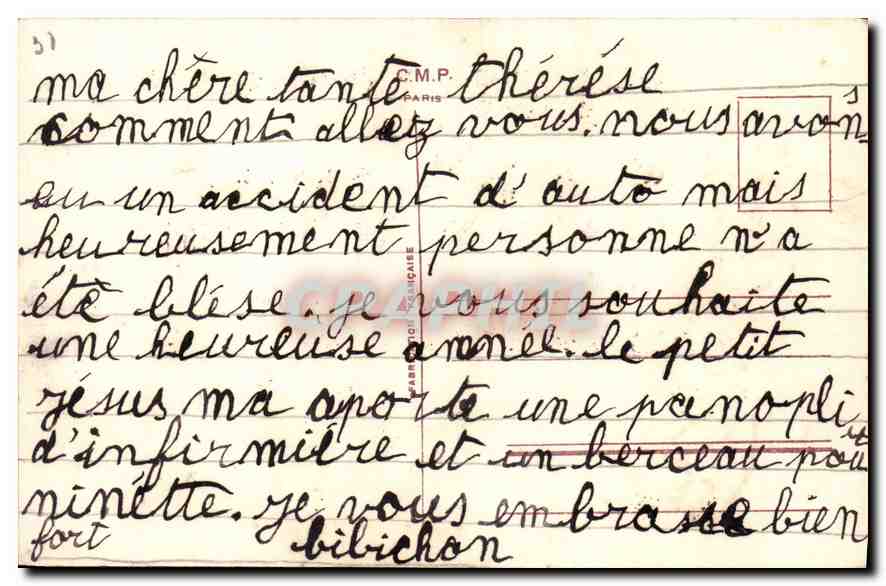 31
C.M.P.
PARIS
ma chère tante thérése
comment allez vous. nous avons
eu un accident d'auto mais
heureusement personne n'a
été blése. je vous souhaite
une heureuse année. le petit
jésus ma aporte une panopli
d'infirmiére et un berceau pour
ninétte. je vous embrasse bien
fort bibichon
FABRICATION FRANÇAISE
CRAPHIL